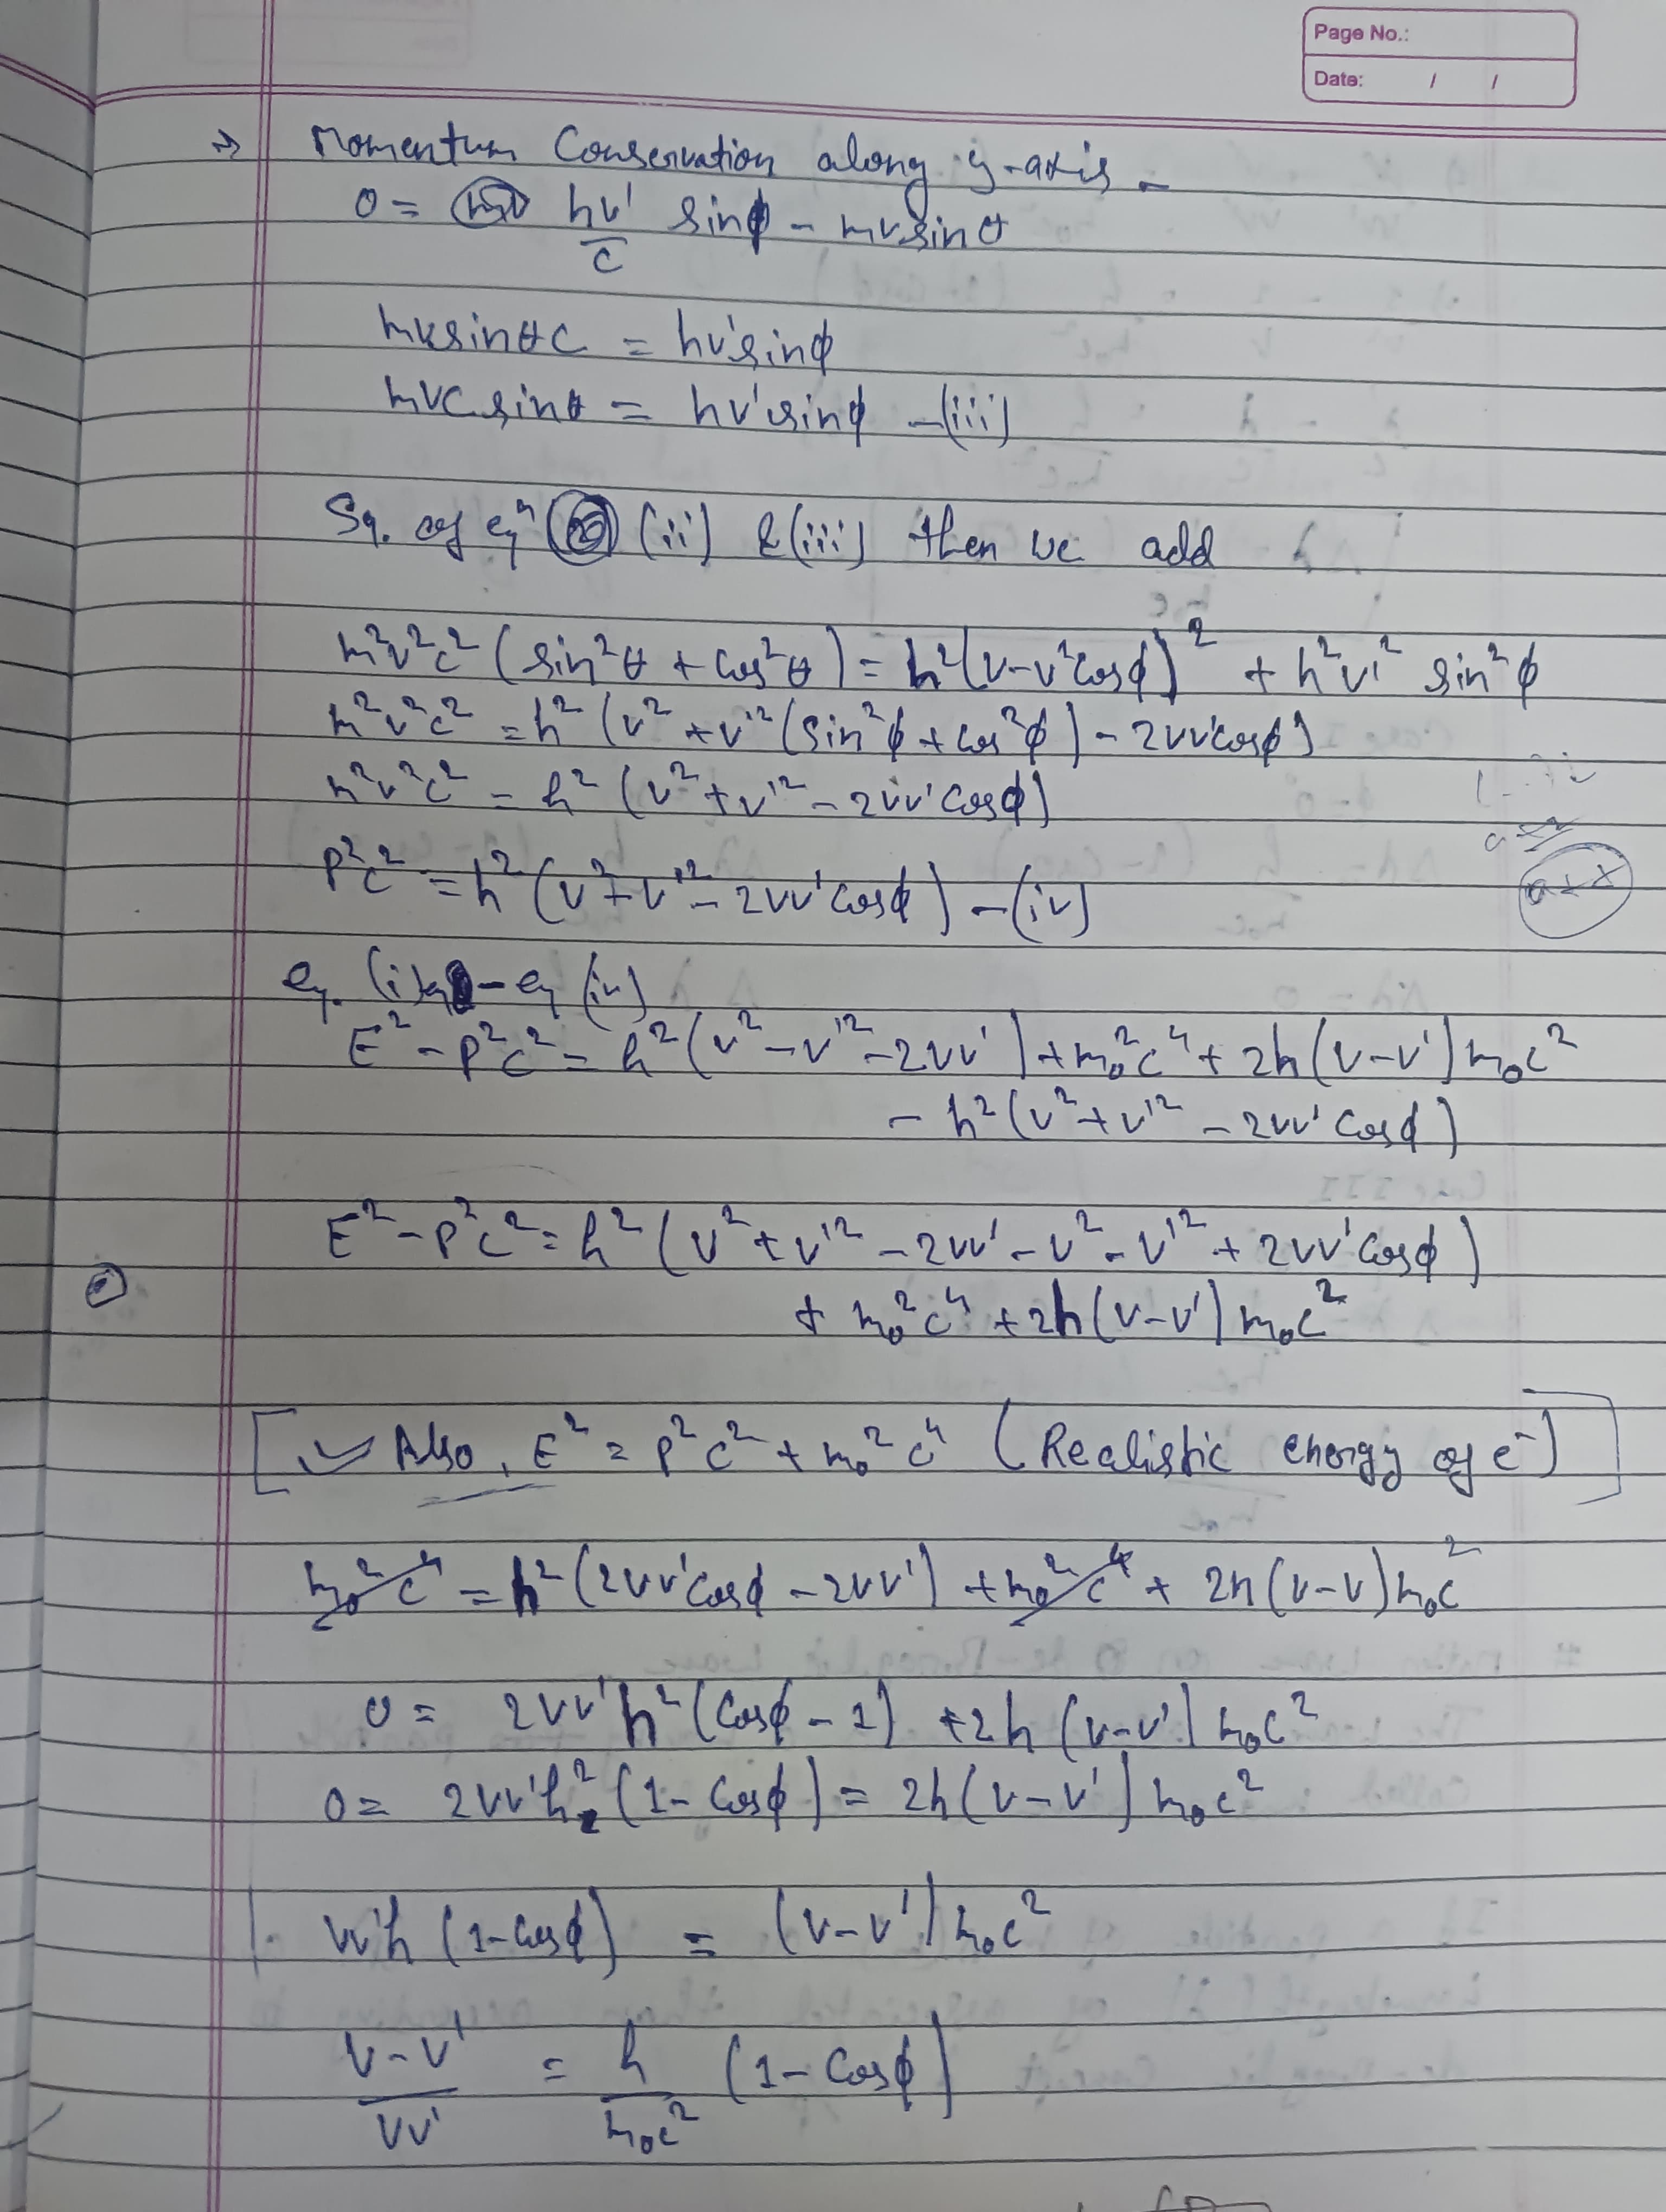 Page No.:
Date: / /
⇒ Momentum Conservation along y-axis -
0 = hv'/c sinϕ - mv sinθ
mv sinθ c = hv' sinϕ
mvc sinθ = hv' sinϕ -(iii)
Sq. of eqⁿ (ii) & (iii) then we add
m²v²c² (sin²θ + cos²θ) = h²(v-v²cosϕ)² + h²v'² sin²ϕ
m²v²c² = h² (v² + v'² (sin²ϕ + cos²ϕ) - 2vv'cosϕ)
m²v²c² = h² (v² + v'² - 2vv' cosϕ)
P²c² = h² (v² + v'² - 2vv' cosϕ) -(iv)
eq. (i) - eq (iv)
E² - P²c² = h² (v² - v'² - 2vv') + m₀²c⁴ + 2h(v-v') m₀c²
- h² (v² + v'² - 2vv' cosϕ)
E² - P²c² = h² (v² + v'² - 2vv' - v² - v'² + 2vv' cosϕ)
+ m₀²c⁴ + 2h(v-v') m₀c²
[ Also, E² = P²c² + m₀²c⁴ (Realistic energy of e⁻) ]
m₀²c⁴ = h² (2vv'cosϕ - 2vv') + m₀²c⁴ + 2h(v-v) m₀c²
0 = 2vv'h² (cosϕ - 1) + 2h (v-v') m₀c²
0 = 2vv'h² (1 - cosϕ) = 2h(v-v') m₀c²
vv'h (1-cosϕ) = (v-v') m₀c²
v-v'/vv' = h/m₀c² (1 - cosϕ)